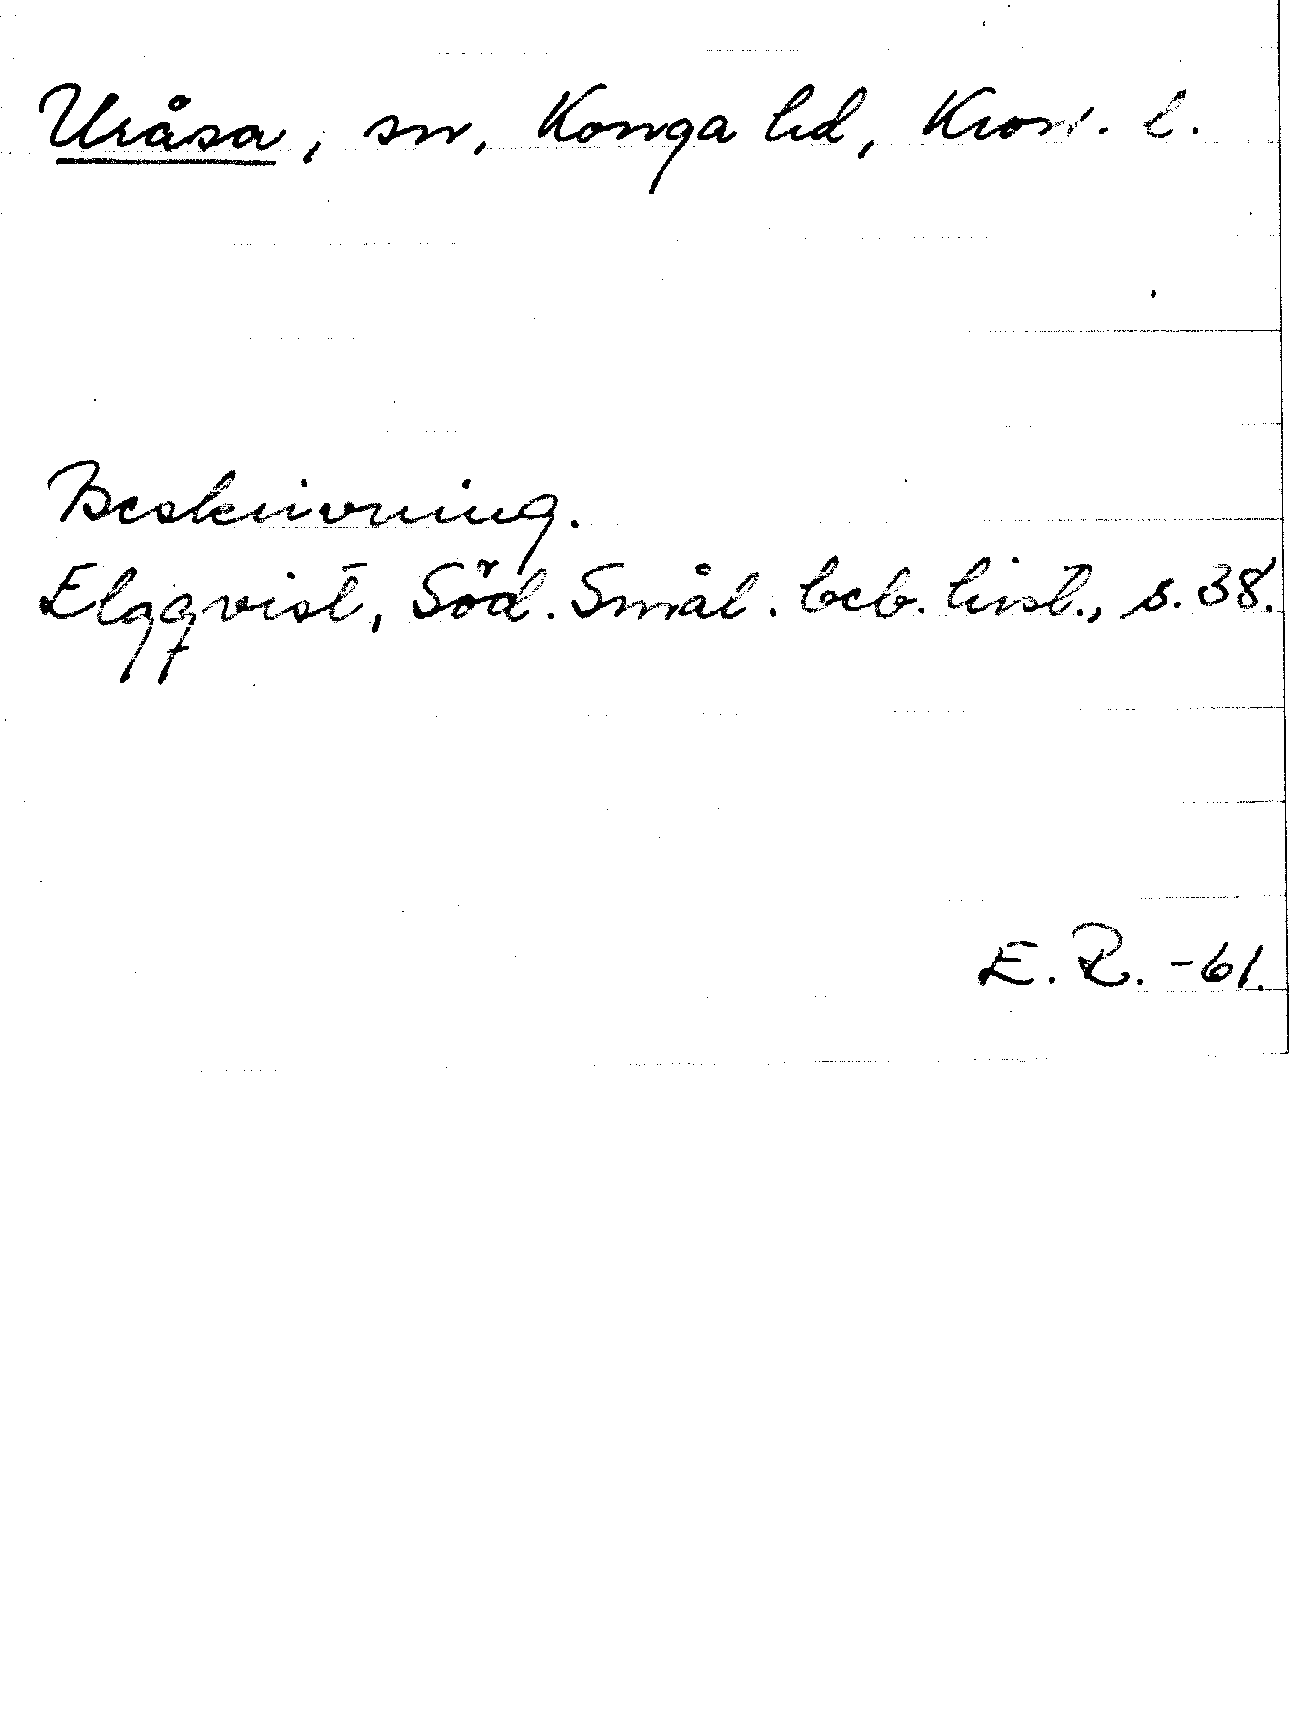 Uråsa, sn, Konga hd, Kron. l.
Beskrivning.
Elgqvist, Söd. Smål. beb. hist., s. 38.
E. R. -61.